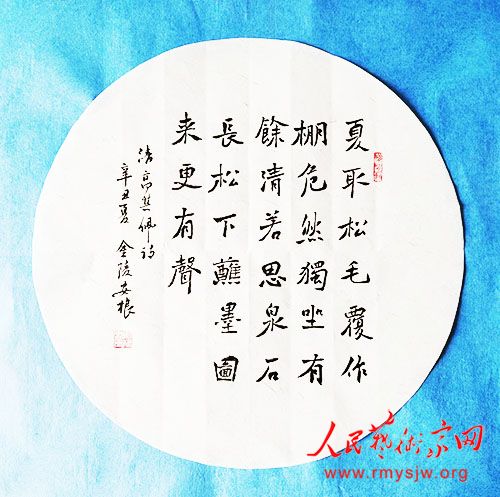 夏耴松毛覆作
棚危然獨坐有
餘清若思泉石
長松下蘸墨圖
来更有聲
清高其佩诗
辛丑夏 金陵安根
人民藝術家网
www.rmysjw.org